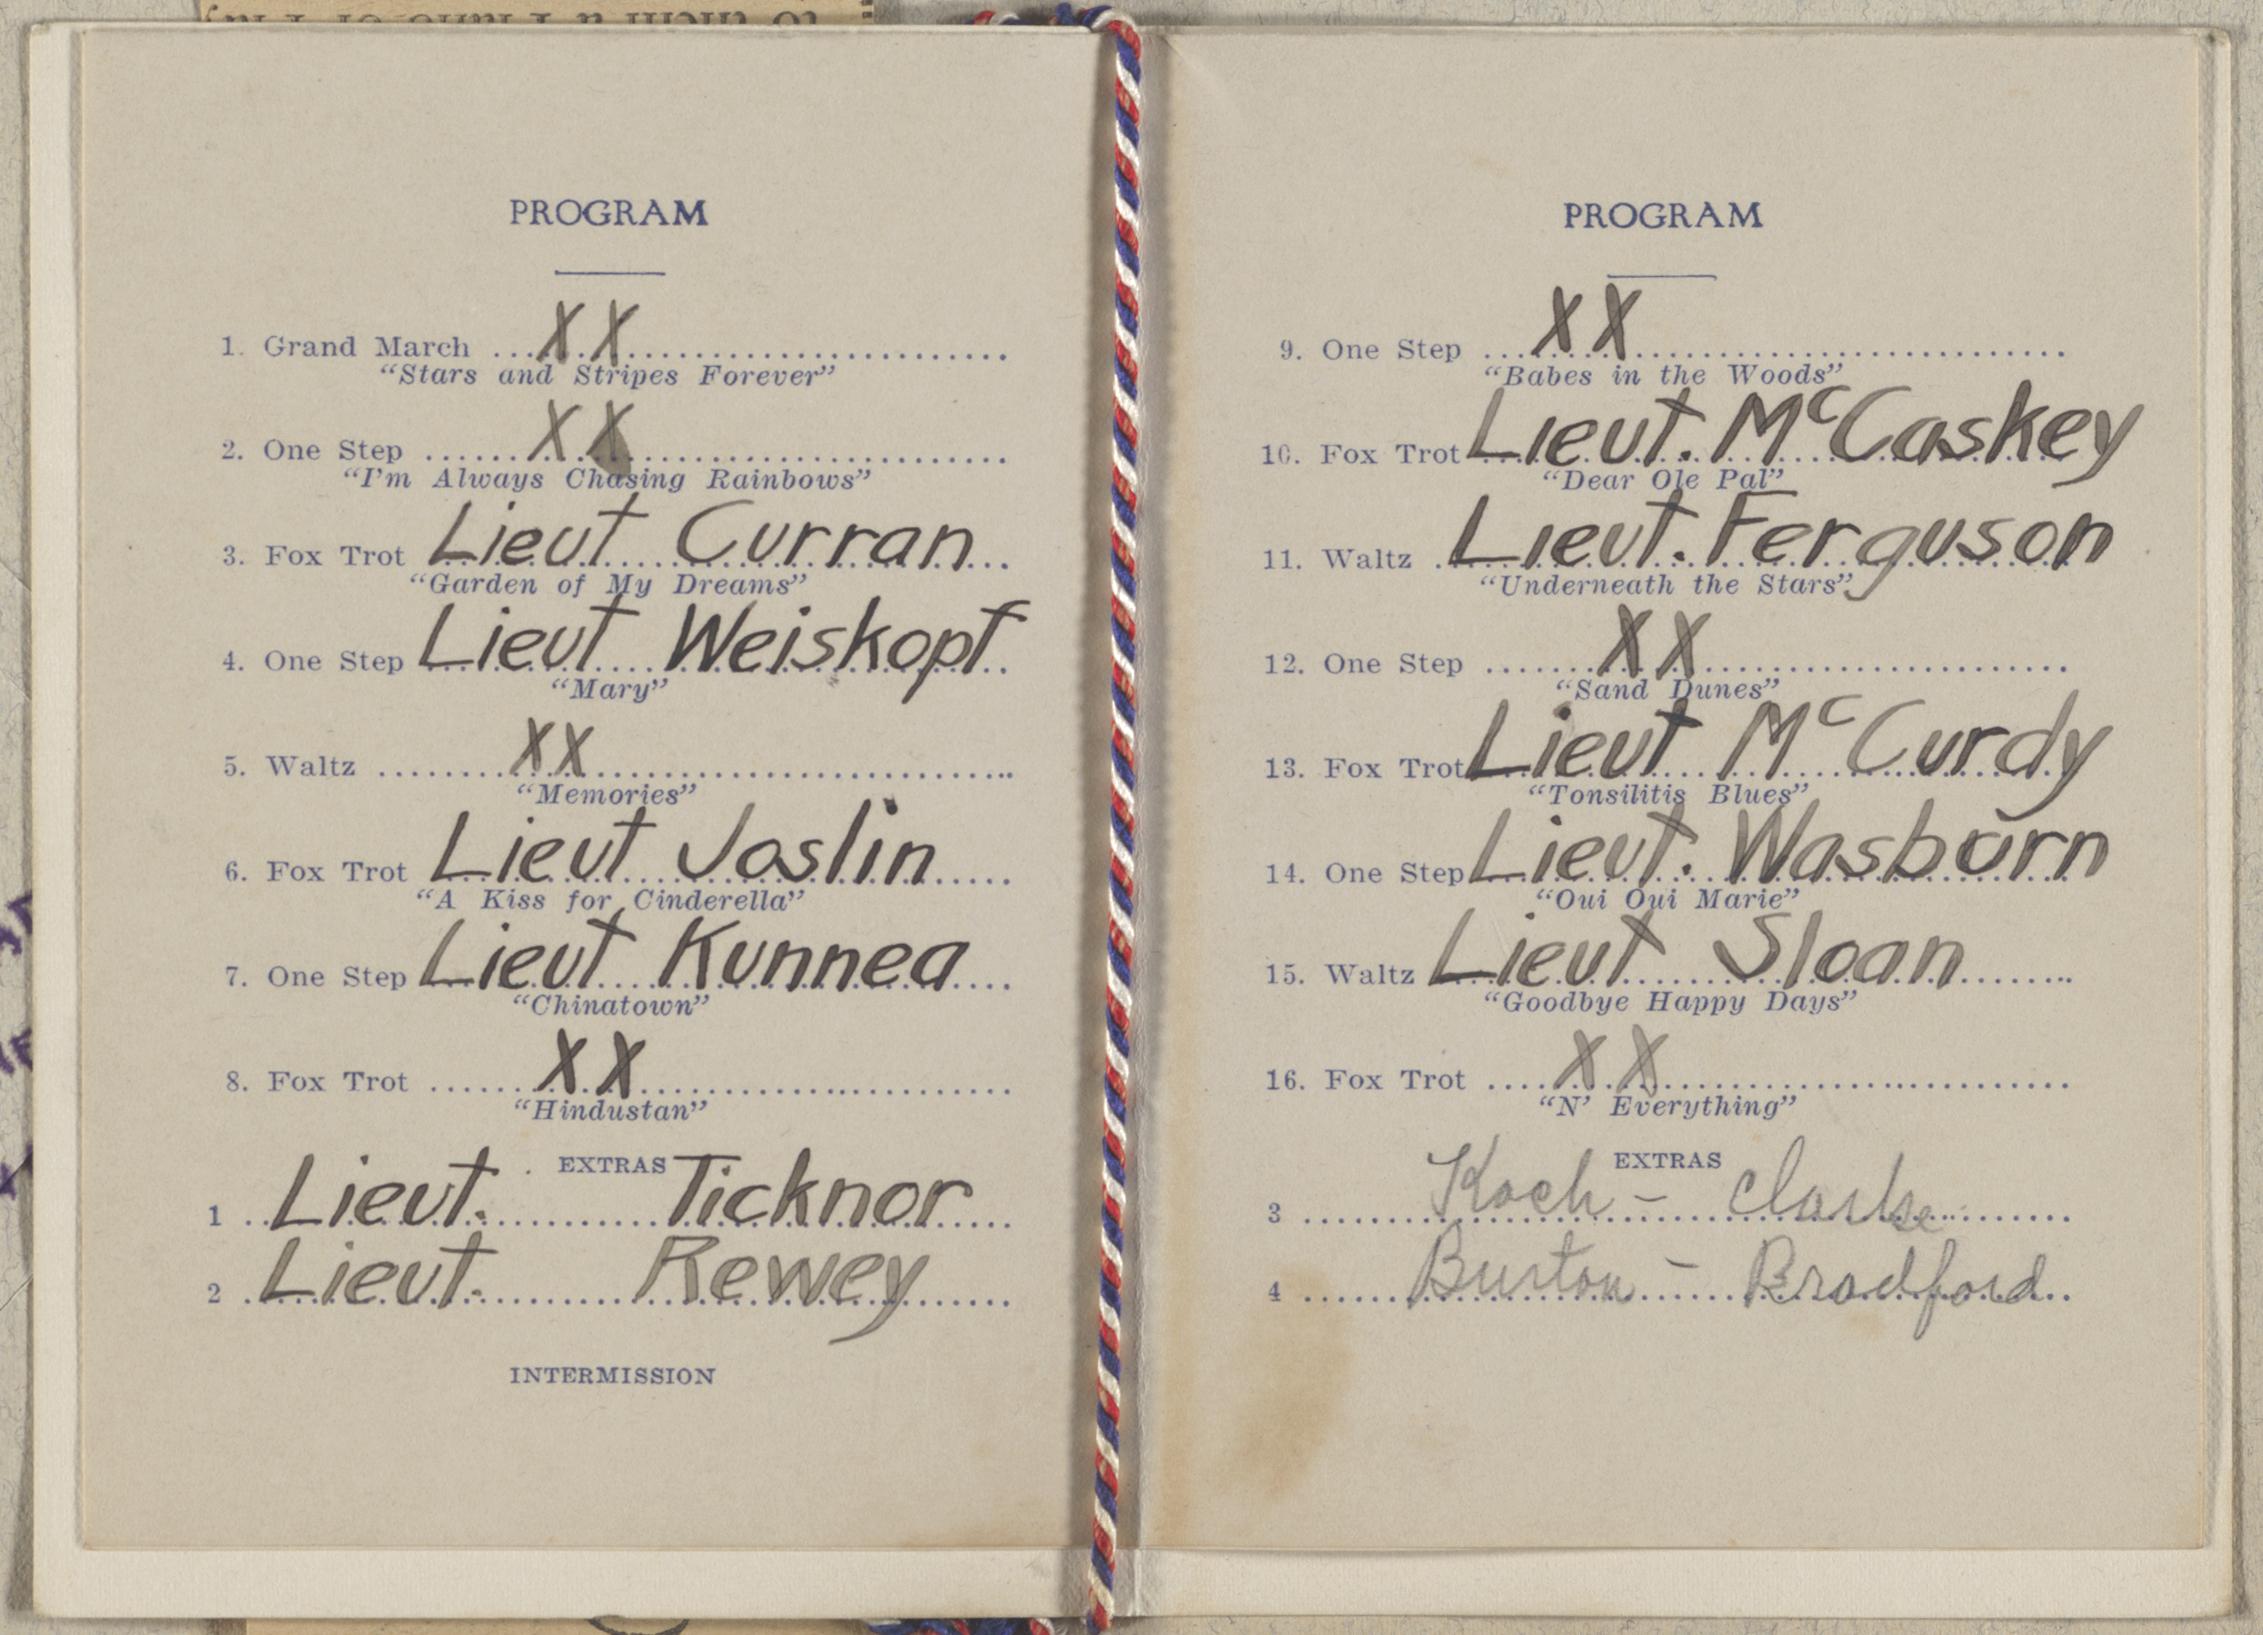 PROGRAM
1. Grand March XX
“Stars and Stripes Forever”
2. One Step XX
“I'm Always Chasing Rainbows”
3. Fox Trot Lieut Curran
“Garden of My Dreams”
4. One Step Lieut Weiskopf
“Mary”
5. Waltz XX
“Memories”
6. Fox Trot Lieut Joslin
“A Kiss for Cinderella”
7. One Step Lieut Kunnea
“Chinatown”
8. Fox Trot XX
“Hindustan”
EXTRAS
1 Lieut. Ticknor
2 Lieut. Rewey
INTERMISSION
PROGRAM
9. One Step XX
“Babes in the Woods”
10. Fox Trot Lieut. McCaskey
“Dear Ole Pal”
11. Waltz Lieut. Ferguson
“Underneath the Stars”
12. One Step XX
“Sand Dunes”
13. Fox Trot Lieut McCurdy
“Tonsilitis Blues”
14. One Step Lieut. Wasburn
“Oui Oui Marie”
15. Waltz Lieut Sloan
“Goodbye Happy Days”
16. Fox Trot XX
“N' Everything”
EXTRAS
3 Koch - Clarke
4 Burton - Bradford